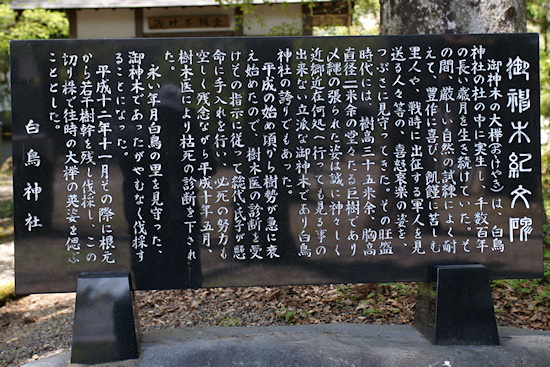 御神木紀文碑
御神木の大欅(おおけやき)は、白鳥
神社の杜の中に実生し、千数百年
の長い歳月を生き続けていた。そ
の間、厳しい自然の試練によく耐
えて、豊作に喜び、飢饉に苦しむ
里人や、戦時に出征する軍人を見
送る人々等の、喜怒哀楽の姿を、
つぶさに見守ってきた。その旺盛
時代には、樹高三十五米余、胸高
直径二米余の堂々たる巨樹であり
〆縄の張られた姿は誠に神々しく
近郷近在の何処へ行っても見る事の
出来ない立派な御神木であり白鳥
神社の誇りでもあった。
平成の始め頃から樹勢が急に衰
え始めたので、樹木医の診断を受
けその指示に従って総代や氏子が懸
命に手入れを行い、必死の努力も
空しく残念ながら平成十年五月、
樹木医により枯死の診断を下され
た。
永い年月白鳥の里を見守った、
御神木であったがやむなく伐採す
ることになった。
平成十二年十一月その際に根元
から若干樹幹を残し伐採し、この
切り株で往時の大欅の英姿を偲ぶ
こととした。
白鳥神社